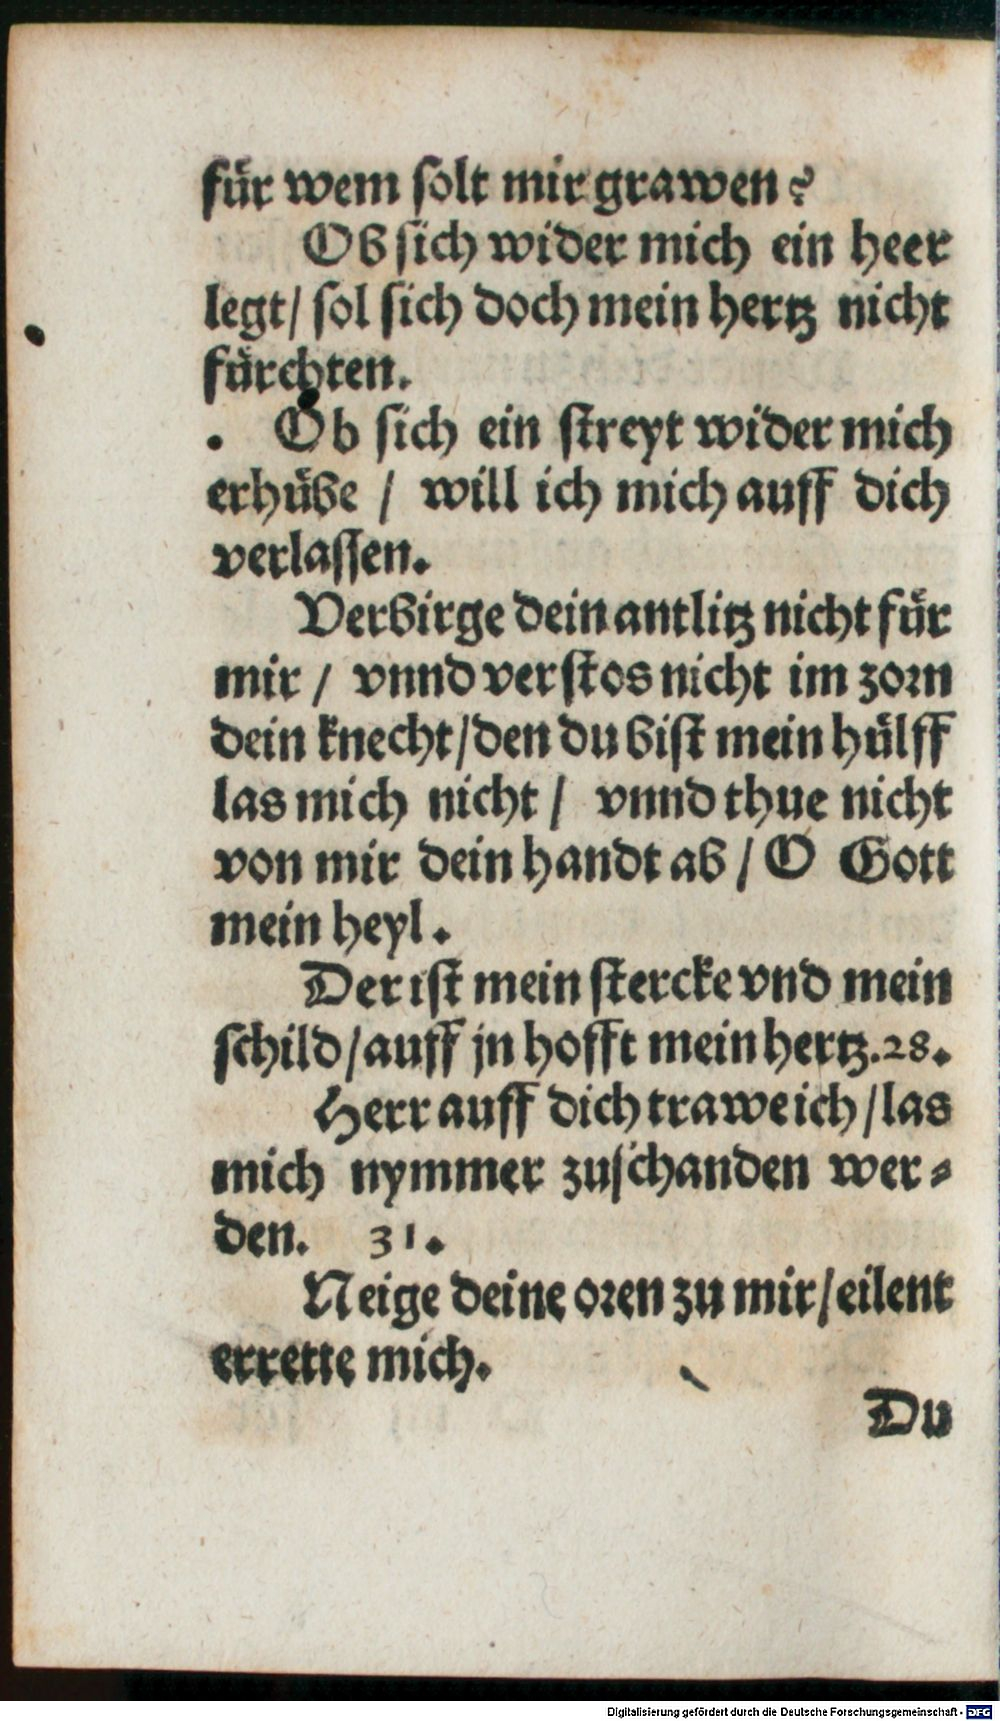 für wem ſolt mir grawen?
Ob ſich wider mich ein heer
legt/ ſol ſich doch mein hertz nicht
fürchten.
Ob ſich ein ſtreyt wider mich
erhübe / will ich mich auff dich
verlaſſen.
Verbirge dein antlitz nicht für
mir / vnnd verſtos nicht im zorn
dein knecht/den du biſt mein hülff
las mich nicht / vnnd thue nicht
von mir dein handt ab / O Gott
mein heyl.
Der iſt mein ſtercke vnd mein
ſchild/auff jn hofft mein hertz.28.
Herr auff dich trawe ich/las
mich nymmer zuſchanden wer⸗
den. 31.
Neige deine oren zu mir/eilent
errette mich.
Du
Digitalisierung gefördert durch die Deutsche Forschungsgemeinschaft - DFG